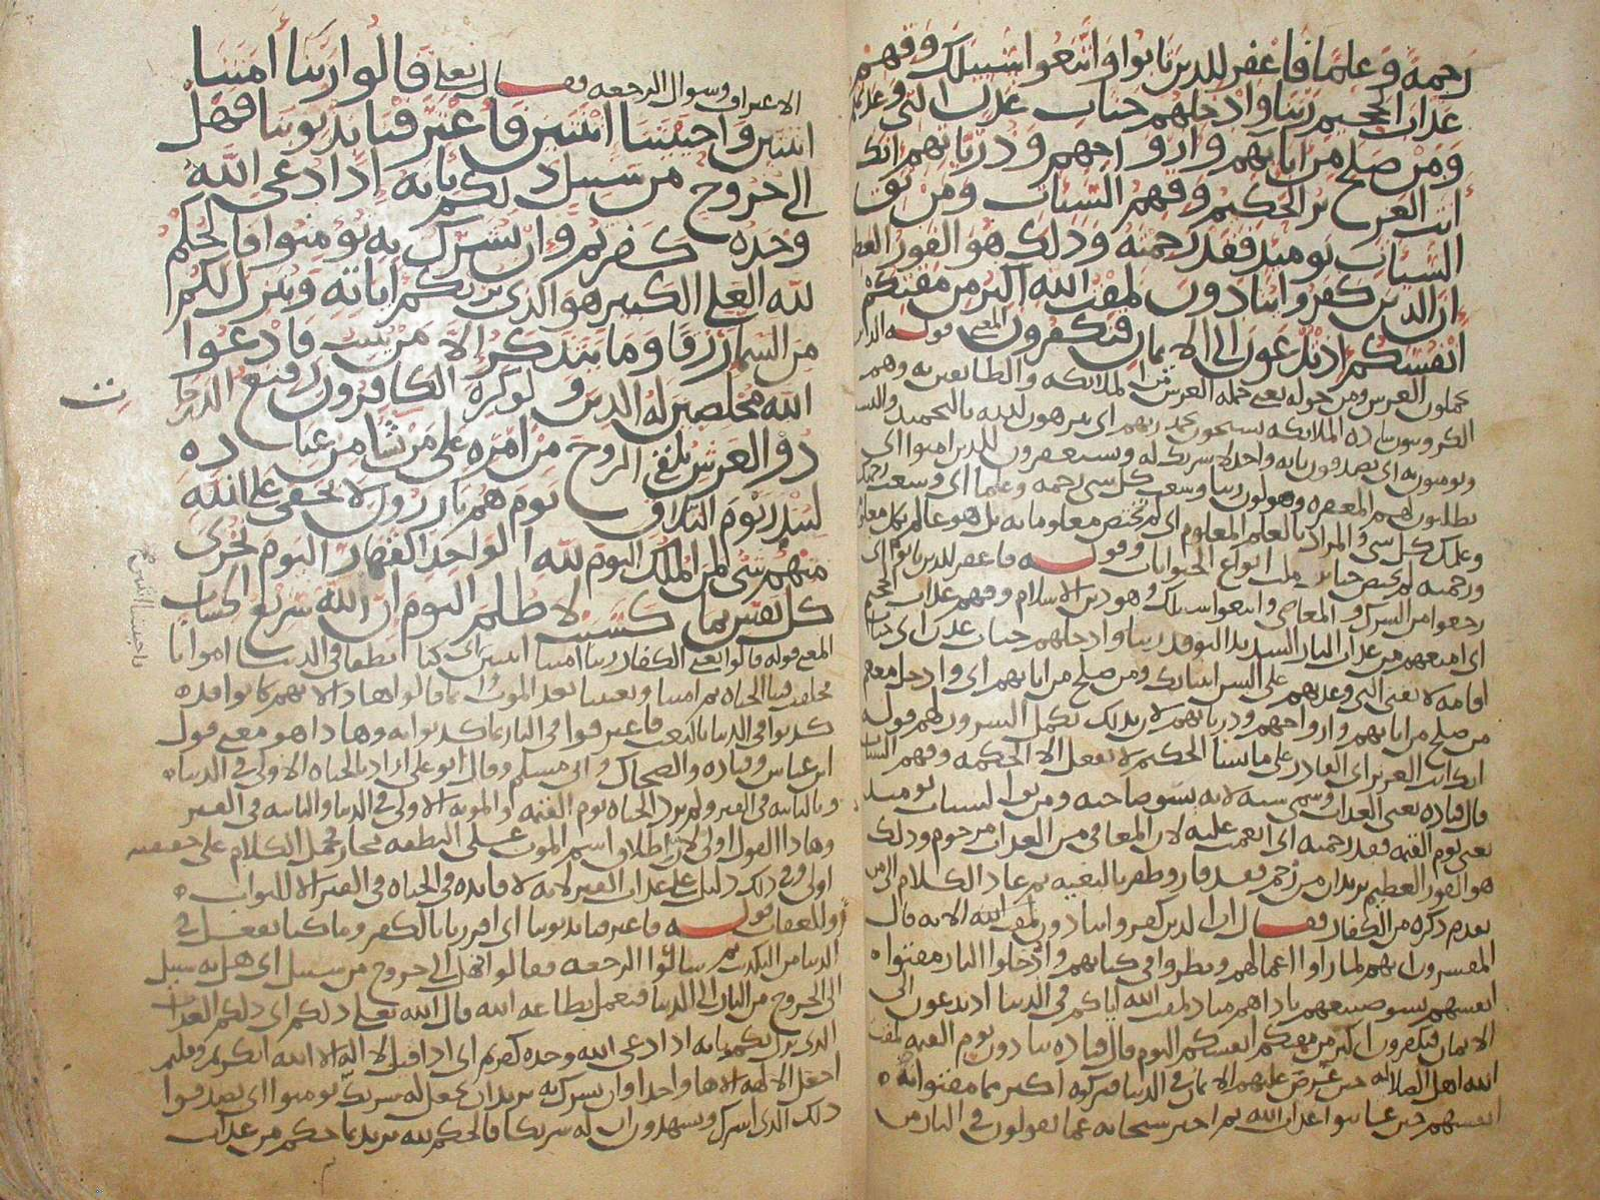 رحمة وعلما فاغفر للذين تابوا واتبعوا سبيلك وقهم
عذاب الجحيم ربنا وادخلهم جنات عدن التي وعدتهم
ومن صلح من ابايهم وازواجهم وذرياتهم انك
انت العزيز الحكيم وقهم السيات ومن تق
السيات يوميذ فقد رحمته وذلك هو الفوز العظيم
ان الذين كفروا ينادون لمقت الله اكبر من مقتكم
انفسكم اذ تدعون الى الايمان فتكفرون المعنى قوله الذين
يحملون العرش ومن حوله يعني حملة العرش من الملايكة والطايفين به وهم
الكروبيون سادة الملايكة يسبحون بحمد ربهم اي ينزهون لله بالتحميد
ويومنون به اي يصدقون بانه واحد لا شريك له ويستغفرون للذين امنوا اي
يطلبون لهم المغفرة ويقولون ربنا وسعت كل شي رحمة وعلما اي وسعت رحمتك
وعلمك كل شي والمراد بالعلم المعلوم اي لم تختص معلوماته بل هو عالم بكل معلوم
ورحمته لم تختص حيا من انواع الحيوانات وقوله فاغفر للذين تابوا اي
رجعوا من الشرك والمعاصي واتبعوا سبيلك وهو دين الاسلام وقهم عذاب الجحيم
اي امنعهم من عذاب النار ربنا وادخلهم جنات عدن اي جنات
اقامة لا تفنى التي وعدتهم على السن انبيايك ومن صلح من ابايهم اي وادخل معهم
من صلح من ابايهم وازواجهم وذرياتهم لان بذلك تكمل السرور لهم قوله
انك انت العزيز اي القادر على ما تشا الحكيم لا تفعل الا الحكمة وقهم السيات
قال قتادة يعني العذاب وسمي سية لانه يسو صاحبه ومن تق السيات يوميذ
يعني يوم القيمة فقد رحمته اي انعمت عليه لان المعافى من العذاب مرحوم وذلك
هو الفوز العظيم يريد ان من رحم فقد فاز وظفر بالبغية ثم عاد الكلام الى من
تقدم ذكره من الكفار فقال ان الذين كفروا ينادون لمقت الله الاية قال
المفسرون انهم لما راوا اعمالهم ونظروا في كتابهم وادخلوا النار مقتوا
انفسهم بسو صنيعهم ناداهم مناد لمقت الله اياكم في الدنيا اذ تدعون الى
الايمان فتكفرون اكبر من مقتكم انفسكم اليوم قال قتادة ينادون يوم القيمة لمقت
الله اهل الضلالة حين عرض عليهم الايمان في الدنيا فتركوه اكبر مما مقتوا به
انفسهم حين عاينوا عذاب الله ثم اخبر سبحانه عما يقولون في النار من
الاعتراف وسوال الرجعة فقال تعلى قالوا ربنا امتنا
اثنتين واحييتنا اثنتين فاعترفنا بذنوبنا فهل
الى خروج من سبيل ذلكم بانه اذا دعي الله
وحده كفرتم وان يشرك به تومنوا فالحكم
لله العلي الكبير هو الذي يريكم اياته وينزل لكم
من السما رزقا وما يتذكر الا من ينيب فادعوا
الله مخلصين له الدين ولو كره الكافرون رفيع الدرجات
ذو العرش يلقي الروح من امره على من يشا من عباده
لينذر يوم التلاق يوم هم بارزون لا يخفى على الله
منهم شي لمن الملك اليوم لله الواحد القهار اليوم تجزى
كل نفس بما كسبت لا ظلم اليوم ان الله سريع الحساب
المعنى قوله قالوا يعني الكفار ربنا امتنا اثنتين اي كنا نطفا في الدنيا امواتا
فخلقت فينا الحياة ثم امتنا وبعثتنا بعد الموت وانما قالوا هاذا لانهم كانوا قد
كذبوا في الدنيا بالبعث فاعترفوا في النار بما كذبوا به وهاذا هو معنى قول
ابن عباس وقتادة والضحاك وابي مسلم وقال ابو علي اراد بالحياة الاولى في الدنيا
وبالثانية في القبر ولم يرد الحياة يوم القيمة والموتة الاولى في الدنيا والثانية في القبر
وهاذا القول اولى لان اطلاق اسم الموت على النطفة مجاز فحمل الكلام على حقيقته
اولى وفي ذلك دليل على عذاب القبر لانه لا فايدة في الحياة في القبر الا للثواب
او للعقاب قوله فاعترفنا بذنوبنا اي اقررنا بالكفر وما كنا نفعل في
الدنيا من التكذيب ثم سالوا الرجعة فقالوا فهل الى خروج من سبيل اي هل من سبيل
الى الخروج من النار الى الدنيا فنعمل بطاعة الله قال الله تعلى ذلكم اي ذلكم العذاب
الذي نزل بكم بانه اذا دعي الله وحده كفرتم اي اذا قيل لا اله الا الله انكرتم وقلتم
اجعل الالهة الاها واحدا وان يشرك به يريد ان يجعل له شريك تومنوا اي تصدقوا
ذلك الذي اشرك وتشهدون ان له شريكا فالحكم لله يريد بما حكم من عذاب